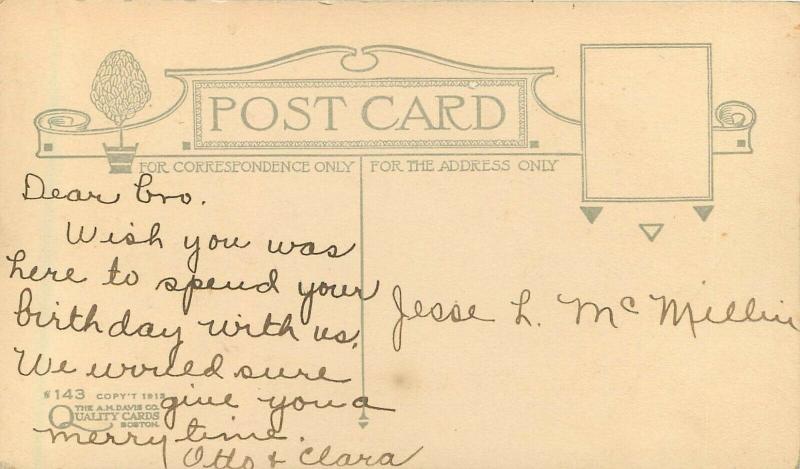 POST CARD
FOR CORRESPONDENCE ONLY
FOR THE ADDRESS ONLY
Dear Bro.
Wish you was
here to spend your
birthday with us.
We would sure
give you a
merry time.
Otto & Clara
Jesse L. Mc Millin
143 COPY'T 1912
THE A.M. DAVIS CO.
QUALITY CARDS
BOSTON.